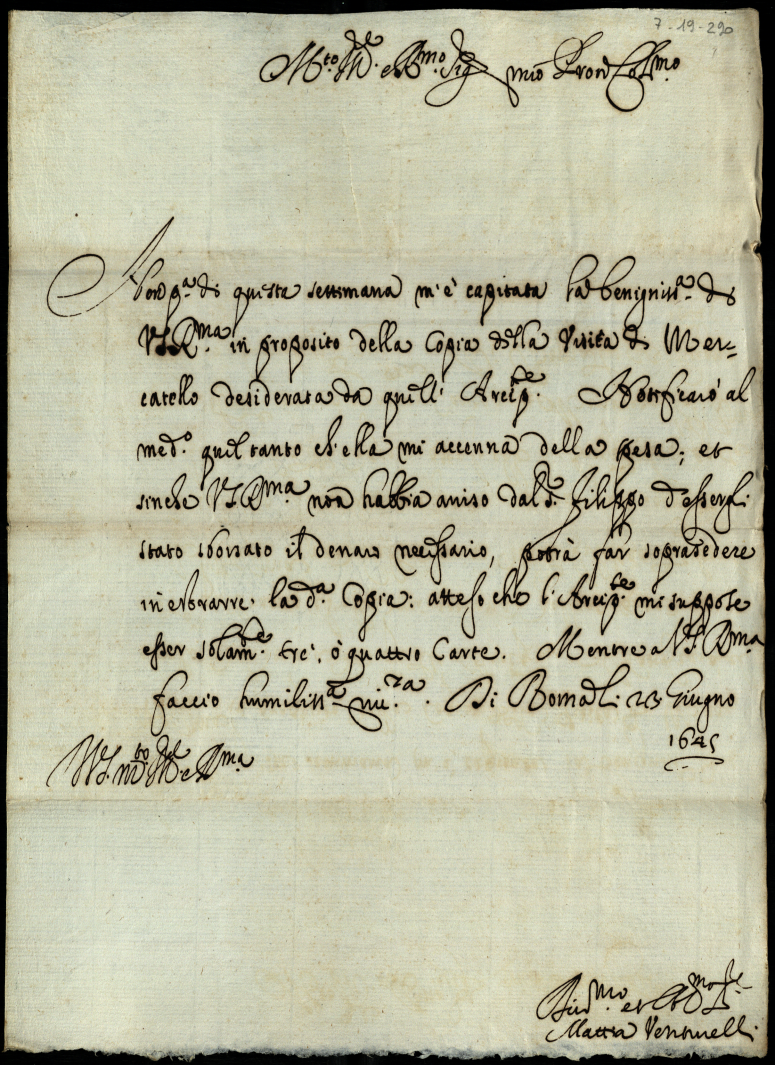 7-19-290
M.to Ill.re e R.mo Sig.re mio Pron Col.mo
Non p.a di questa settimana m'è capitata la benigniss.a di
VS R.ma in proposito della Copia della Visita di Mer=
catello desiderata da quell' Arcip.te Notificarò al
med.o quel tanto ch'ella mi accenna della pesa; et
sinche VS R.ma non habbia aviso dal S.r Filippo d'essergli
stato sborsato il denaro necessario, potrà far soprasedere
in estrarre la d.a Copia: atteso che l'Arcip.te mi suppose
esser solam.te trè, ò quattro Carte. Mentre a VS R.ma
faccio humiliss.a riu.za. Di Roma li 23 Giugno
1645
VS. m.to Ill.re e R.ma
Ser.re
Mattia Venturelli